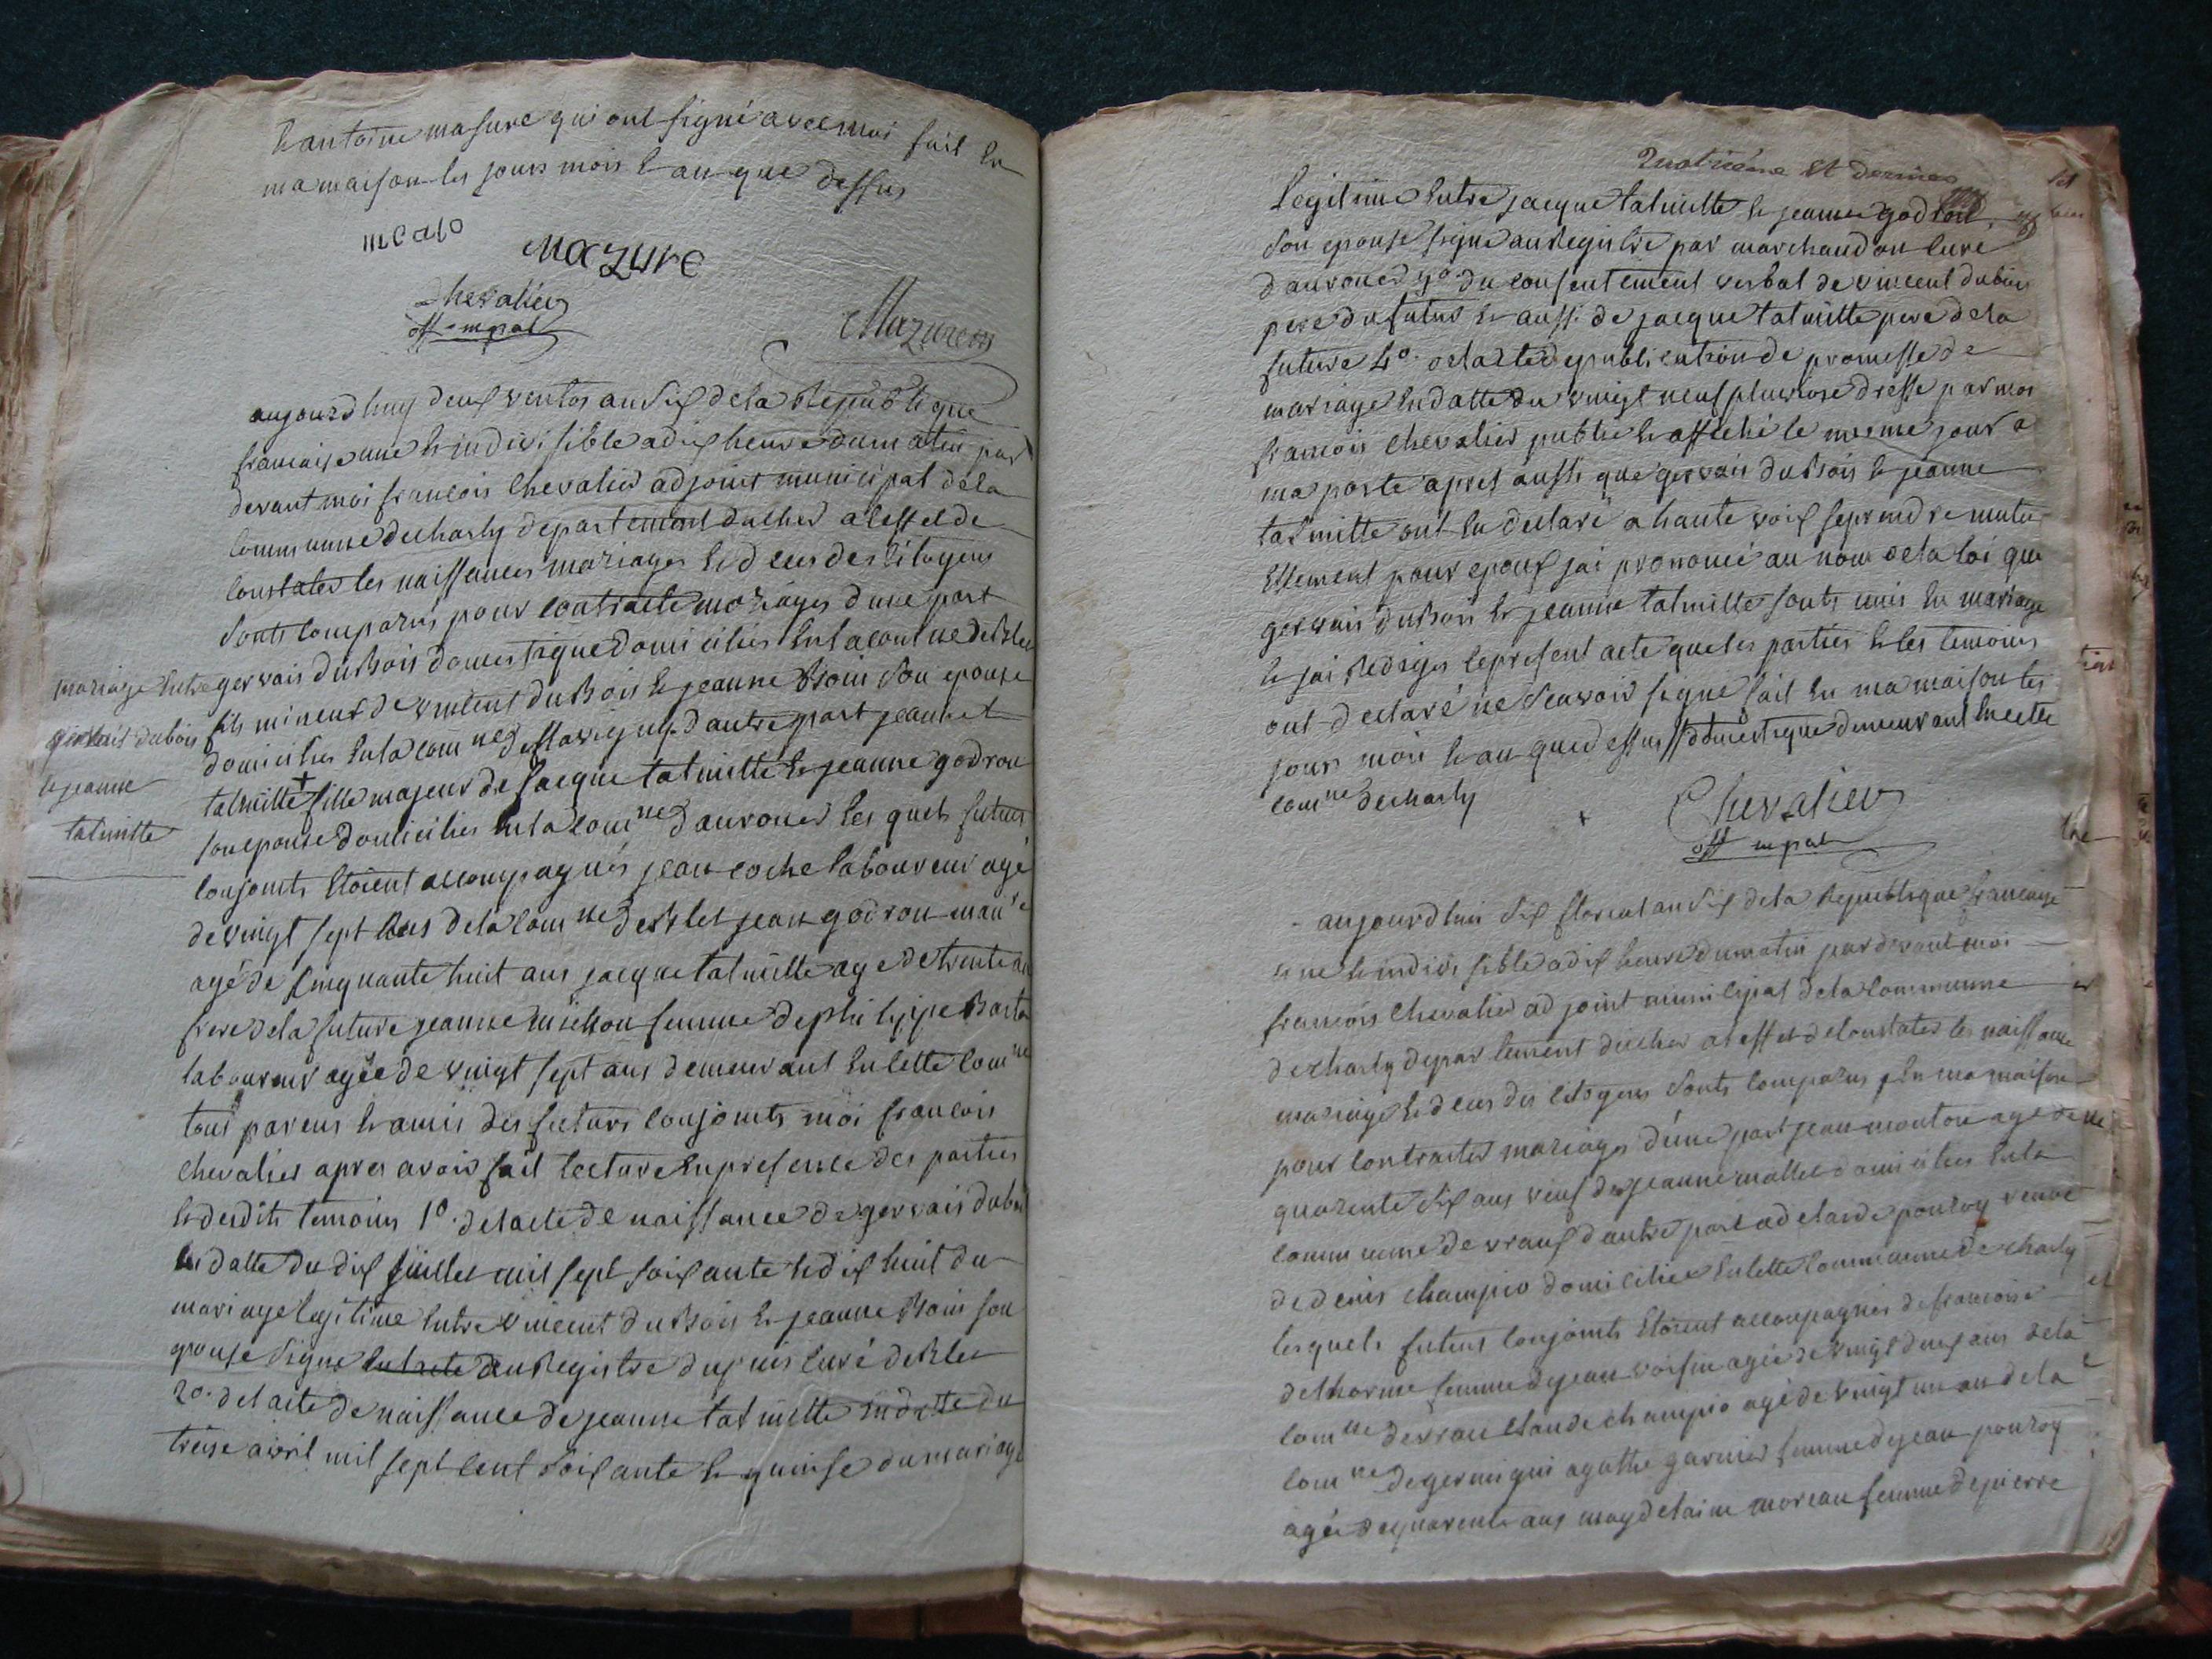 & antoine masure qui ont signé avec moi fait en
ma maison les jours mois & an que dessus
mazure
Chevalier
off mpal
Mazure
aujourdhuy deux ventos an six de la Republique
francaise une & indivisible a dix heure du matin par
devant moi francois Chevalier adjoint municipal de la
Commune de charly departement du cher a leffet de
Constater les naissances mariages & deces des Citoyens
sonts comparus pour contracte mariages dune part
mariage entre gervais dubois domestique domicilies en la comne de
gervais dubois fils mineur de vincent dubois & jeanne son epouse
& jeanne talmitte
domicilies en la comne de dautre part jeanne
talmitte + fille majeur de Jacque talmitte & jeanne godron
son epouse domicilies en la comne daurouer les quels futurs
conjoints etoient accompagnés jean coche laboureur agé
de vingt sept ans de la comne de jean godron
agé de cinquante huit ans jacque talmitte age de trente
frere de la future jeanne michon femme de philippe
laboureur agée de vingt sept ans demeurant en cette comne
tous parens & amis des futurs conjoints moi francois
chevalier apres avoir fait lecture en presence des parties
& desdits temoins 1o. de lacte de naissance de gervais dubois
en datte du dix juillet mil sept soixante & dix huit du
mariage legitime entre vincent dubois & jeanne son
epouse signe au Registre dupuis curé de
2o. de lacte de naissance de jeanne talmitte en datte du
treise avril mil sept cent soixante & quinse du mariage
quatrieme et dernier
Legitime entre jacque talmitte & jeanne godron
son epouse signe au Registre par marchandon curé
daurouer 3o. du consentement verbal de vincent dubois
pere du futur & aussi de jacque talmitte pere de la
future 4o. de lacte de publication de promesse de
mariage en datte du vingt neuf pluviose dresse par moi
francois chevalier publié & affiché le meme jour a
ma porte apres aussi que gervais dubois & jeanne
talmitte ont eu declaré a haute voix se prendre mutu
ellement pour epoux jai prononcé au nom de la loi que
gervais dubois & jeanne talmitte sonts unis en mariage
& jai Rediger le present acte que les parties & les temoins
ont declaré ne scavoir signe fait en ma maison les
jour mois & an que dessus // domestique demeurant en cette
comne de charly
Chevalier
off mpal
aujourdhui six floreal an six de la Republique francaise
une & indivisible a dix heure du matin par devant moi
francois Chevalier adjoint municipal de la Commune
de charly departement du cher a leffet de constater les naissance
mariage & deces des citogens sonts comparus en ma maison
pour contracter mariages dune part jean mouton agé de
quarente six ans veuf de jeanne mallet domicilies en la
commune de vraux dautre part adelaide pouroy veuve
de denis champio domiciliee en cette commune de charly
lesquels futurs conjoints etoient accompagnés de francoise
delhorme femme de jean voisin agée de vingt deux ans de la
comne de vrau claude champio agé de vingt un an de la
comne de germigni agathe garnier femme de jean pouroy
agée de quarente ans magdelaine moreau femme de pierre